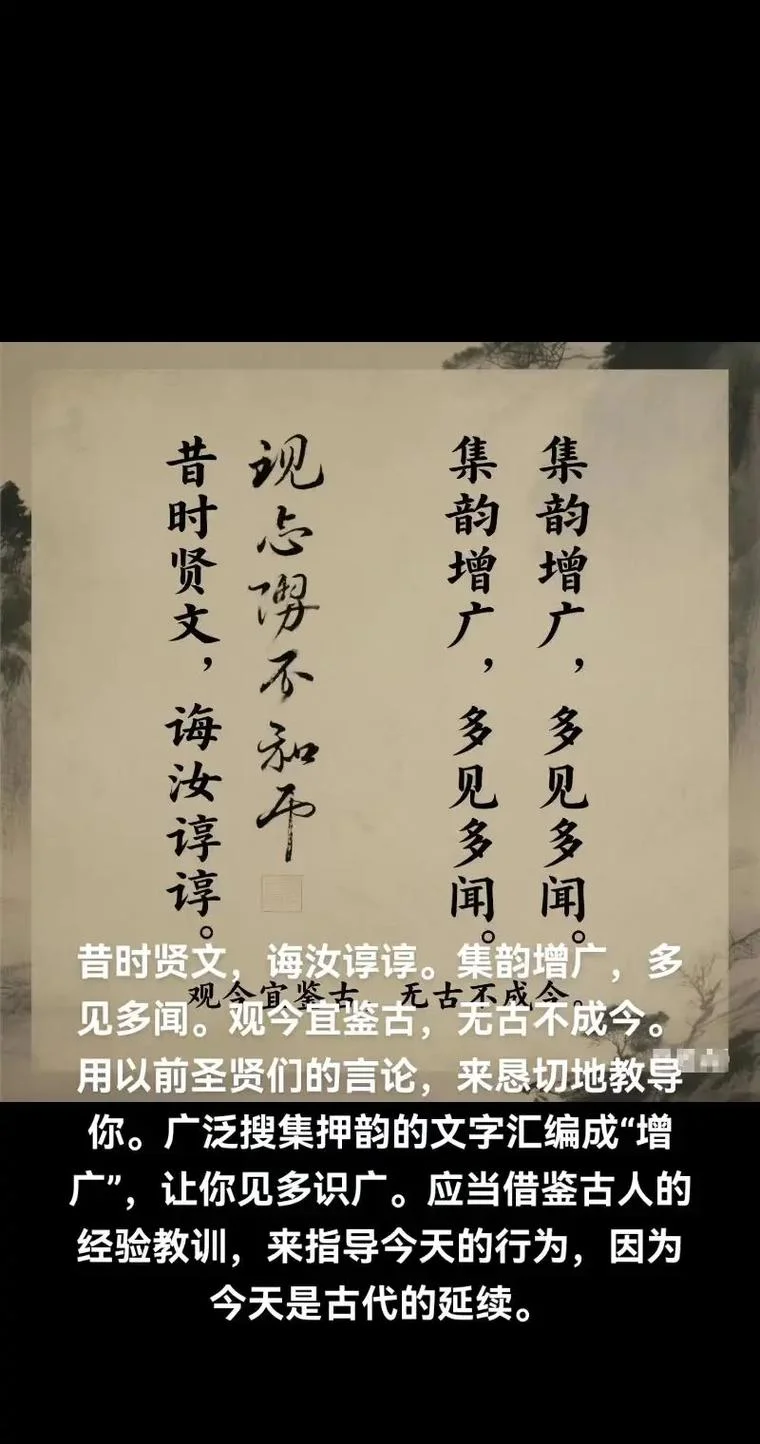 集韵增广，多见多闻。
集韵增广，多见多闻。
昔时贤文，诲汝谆谆。
观今宜鉴古，无古不成今。
昔时贤文，诲汝谆谆。集韵增广，多
见多闻。观今宜鉴古，无古不成今。
用以前圣贤们的言论，来恳切地教导
你。广泛搜集押韵的文字汇编成“增
广”，让你见多识广。应当借鉴古人的
经验教训，来指导今天的行为，因为
今天是古代的延续。